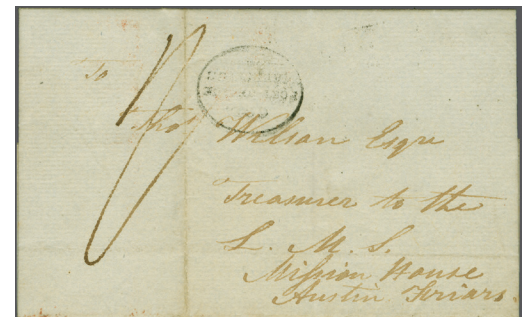 To
Thos Willson Esqre
Treasurer to the
L. M. S.
Mission House
Austin Friars.